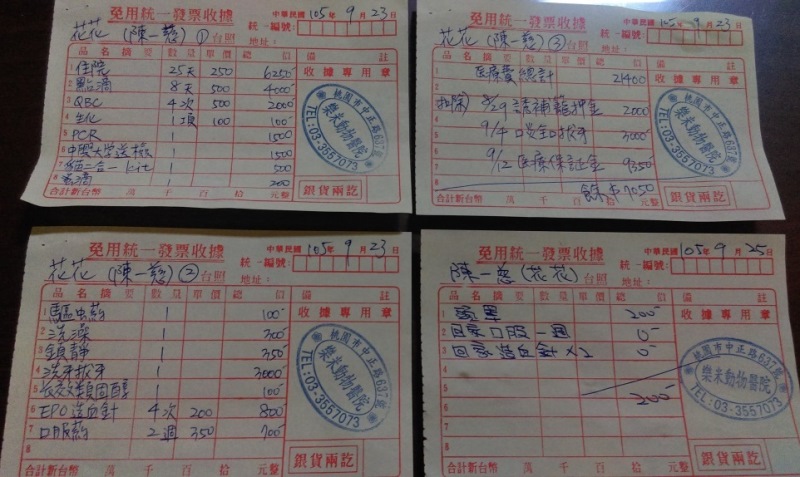 免用統一發票收據
中華民國105年9月23日
花花 (陳一慈) ① 台照
統一編號:
地址:
品名 摘要 數量 單價 總價 備註
1 住院 25天 250 6250
2 點滴 8天 500 4000
3 CBC 4次 500 2000
4 生化 1項 100 100
5 PCR 1 1500
6 中興大學送檢 1 1500
7 貓二合一kit 1 500
8 1 200
收據專用章
桃園市中正路637號
樂米動物醫院
TEL:03-3557073
合計新台幣 萬 千 百 拾 元整
銀貨兩訖
免用統一發票收據
中華民國105年9月23日
花花 (陳一慈) ③ 台照
統一編號:
地址:
品名 摘要 數量 單價 總價 備註
1 醫療費總計 21400
2
3 扣除) 8/29 誘捕籠押金 2000
4
5 9/4 口炎全口拔牙 3000
6
7 9/12 醫療保證金 9350
8 7050
收據專用章
桃園市中正路637號
樂米動物醫院
TEL:03-3557073
合計新台幣 萬 千 百 拾 元整
銀貨兩訖
免用統一發票收據
中華民國105年9月23日
花花 (陳一慈) ② 台照
統一編號:
地址:
品名 摘要 數量 單價 總價 備註
1 驅虫藥 1 100
2 洗澡 1 300
3 鎮靜 1 350
4 洗牙拔牙 1 3000
5 長效類固醇 1 100
6 EPO造血針 4次 200 800
7 口服藥 2週 350 700
8
收據專用章
桃園市中正路637號
樂米動物醫院
TEL:03-3557073
合計新台幣 萬 千 百 拾 元整
銀貨兩訖
免用統一發票收據
中華民國105年9月25日
陳一慈 (花花) 台照
統一編號:
地址:
品名 摘要 數量 單價 總價 備註
1 200
2 回家口服一週 0
3 回家造血針×2 0
4
5 200
6
7
8
收據專用章
桃園市中正路637號
樂米動物醫院
TEL:03-3557073
合計新台幣 萬 千 百 拾 元整
銀貨兩訖